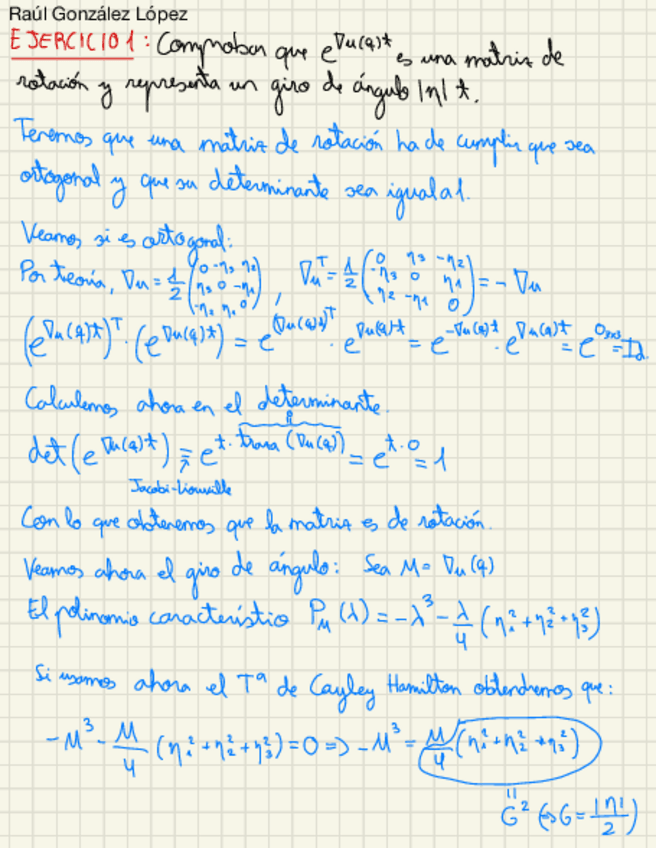 Raúl González López
EJERCICIO 1: Comprobar que e^{∇u(q)t} es una matriz de
rotación y representa un giro de ángulo |η| t.
Tenemos que una matriz de rotación ha de cumplir que sea
ortogonal y que su determinante sea igual a 1.
Veamos si es ortogonal:
Por teoría, ∇u = 1/2 (0 -η₃ η₂; η₃ 0 -η₁; -η₂ η₁ 0), ∇u^T = 1/2 (0 η₃ -η₂; -η₃ 0 η₁; η₂ -η₁ 0) = -∇u
(e^{∇u(q)t})^T · (e^{∇u(q)t}) = e^{(∇u(q)t)^T} · e^{∇u(q)t} = e^{-∇u(q)t} · e^{∇u(q)t} = e^{0_{3x3}} = Id.
Calculemos ahora en el determinante.
det(e^{∇u(q)t}) = e^{t · traza(∇u(q))} = e^{t·0} = 1
Jacobi-Liouville
Con lo que obtenemos que la matriz es de rotación.
Veamos ahora el giro de ángulo: Sea M = ∇u(q)
El polinomio característio P_M(λ) = -λ³ - λ/4 (η₁² + η₂² + η₃²)
Si usamos ahora el Tª de Cayley Hamilton obtendremos que:
-M³ - M/4 (η₁² + η₂² + η₃²) = 0 => -M³ = M/4 (η₁² + η₂² + η₃²)
= G² (⇔ G = |η|/2)